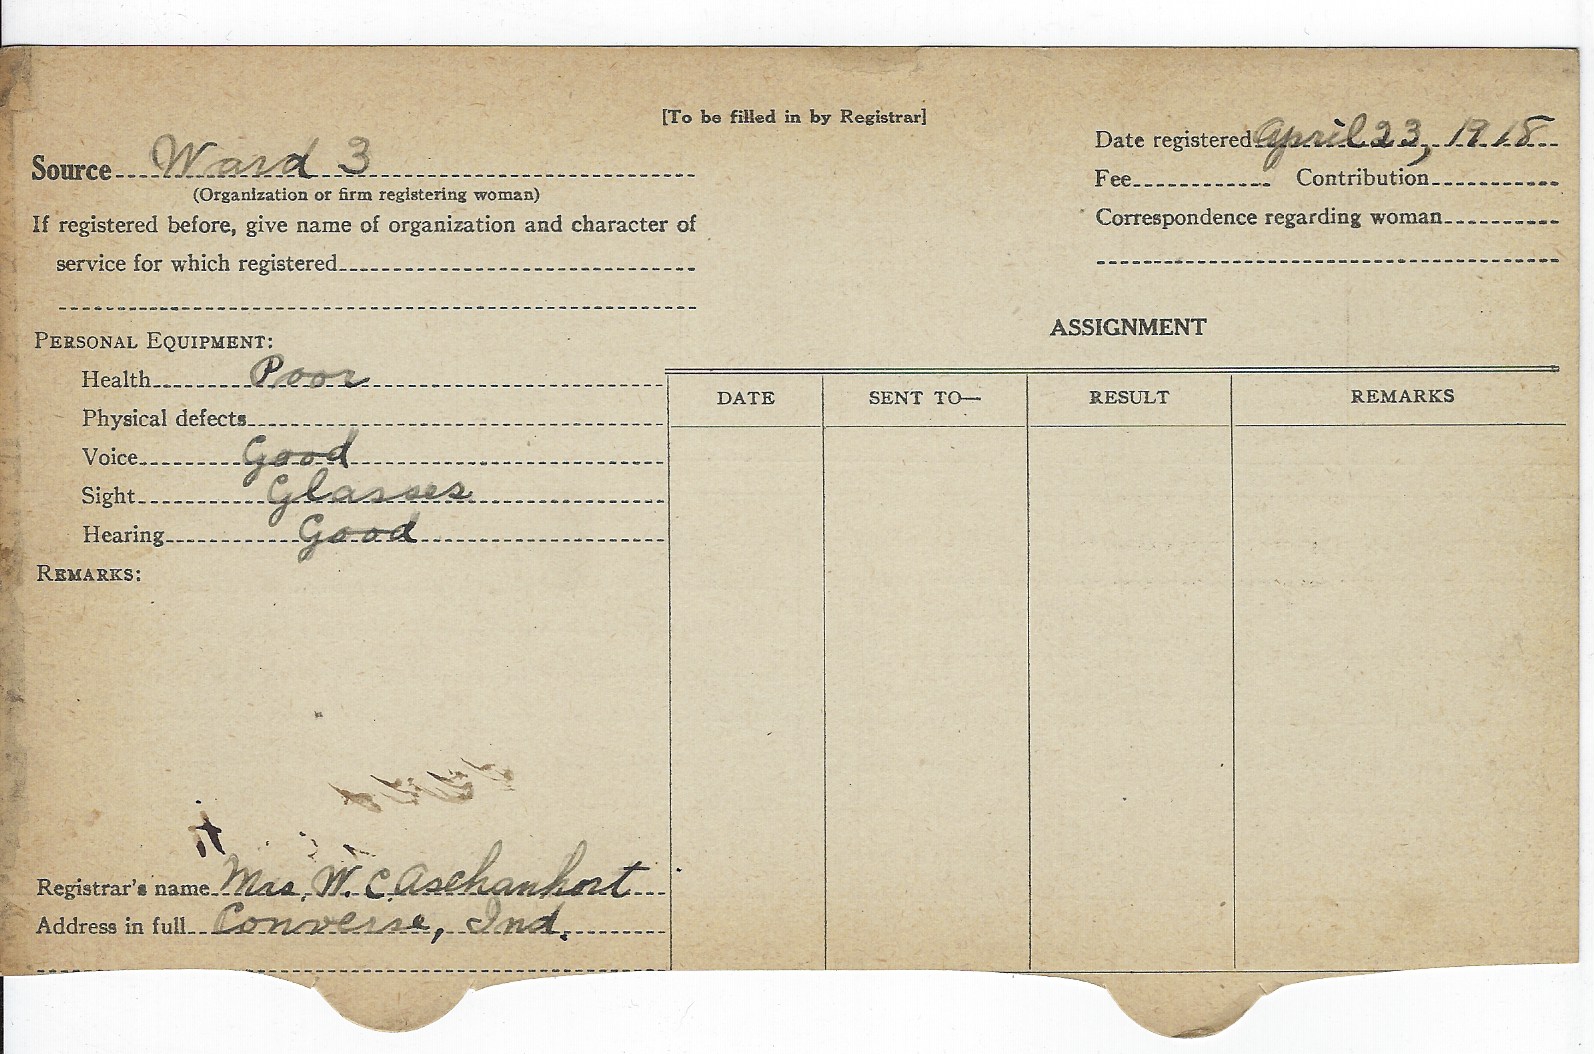 [To be filled in by Registrar]
Date registered April 23, 1918
Source Ward 3
(Organization or firm registering woman)
Fee Contribution
If registered before, give name of organization and character of
Correspondence regarding woman
service for which registered
ASSIGNMENT
PERSONAL EQUIPMENT:
Health Poor
DATE SENT TO— RESULT REMARKS
Physical defects
Voice Good
Sight Glasses
Hearing Good
REMARKS:
Registrar's name Mrs. W. C. Aschanhort
Address in full Converse, Ind.